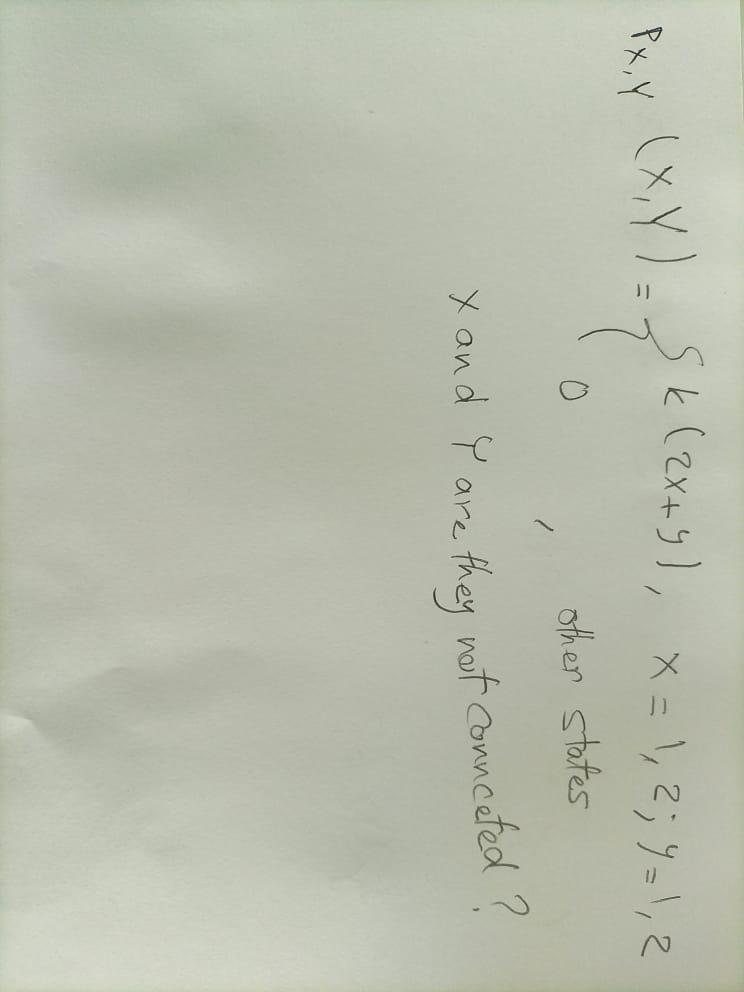 P X,Y (X,Y) = { k (2x+y), x = 1, 2; y = 1, 2
0 , other states
X and Y are they not connceted ?